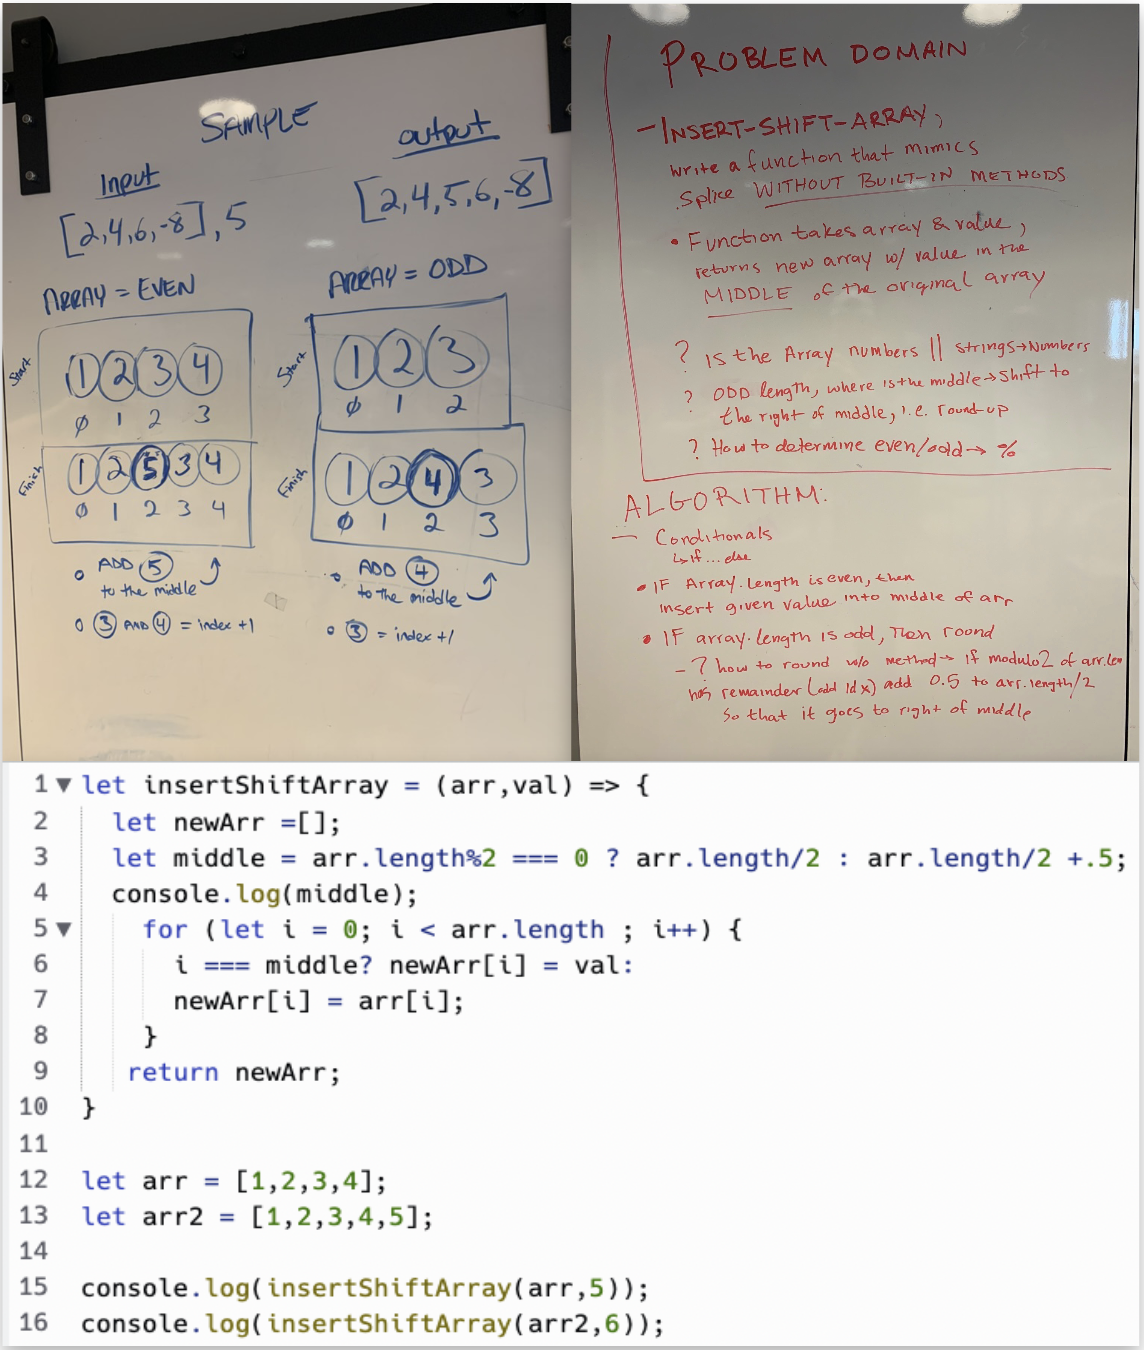 SAMPLE
Input
[2,4,6,-8], 5
output
[2,4,5,6,-8]
ARRAY = EVEN
Start
1 2 3 4
0 1 2 3
Finish
1 2 5 3 4
0 1 2 3 4
ADD 5
to the middle
3 AND 4 = index +1
ARRAY = ODD
Start
1 2 3
0 1 2
Finish
1 2 4 3
0 1 2 3
ADD 4
to the middle
3 = index +1
PROBLEM DOMAIN
- INSERT-SHIFT-ARRAY,
write a function that mimics
splice WITHOUT BUILT-IN METHODS
• Function takes array & value,
returns new array w/ value in the
MIDDLE of the original array
? is the Array numbers || strings→Numbers
? ODD length, where is the middle→shift to
the right of middle, i.e. round-up
? How to determine even/odd→ %
ALGORITHM:
- Conditionals
↳if...else
• IF Array.length is even, then
insert given value into middle of arr
• IF array.length is odd, Then round
- ? how to round w/o method→ if modulo2 of arr.len
has remainder (odd idx) add 0.5 to arr.length/2
So that it goes to right of middle
1 let insertShiftArray = (arr,val) => {
2 let newArr =[];
3 let middle = arr.length%2 === 0 ? arr.length/2 : arr.length/2 +.5;
4 console.log(middle);
5 for (let i = 0; i < arr.length ; i++) {
6 i === middle? newArr[i] = val:
7 newArr[i] = arr[i];
8 }
9 return newArr;
10 }
11
12 let arr = [1,2,3,4];
13 let arr2 = [1,2,3,4,5];
14
15 console.log(insertShiftArray(arr,5));
16 console.log(insertShiftArray(arr2,6));